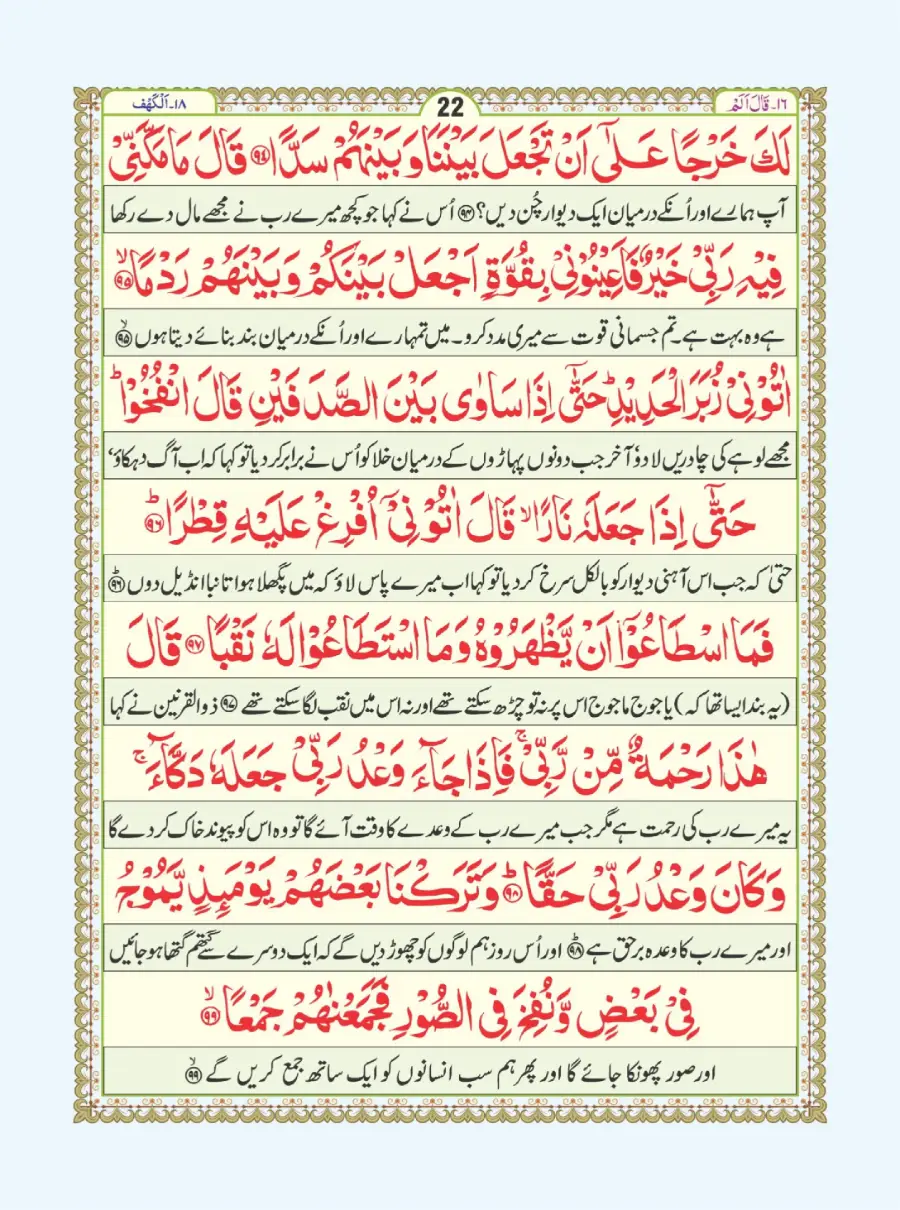 ١٦۔ قَالَ اَلَمْ
22
١٨۔ اَلْكَهْف
لَكَ خَرْجًا عَلٰٓى اَنْ تَجْعَلَ بَيْنَنَا وَبَيْنَهُمْ سَدًّا ﴿٩٤﴾ قَالَ مَا مَكَّنِّيْ
آپ ہمارے اور اُنکے درمیان ایک دیوار چُن دیں؟ ﴿٩٤﴾ اُس نے کہا جو کچھ میرے رب نے مجھے مال دے رکھا
فِيْهِ رَبِّيْ خَيْرٌ فَاَعِيْنُوْنِيْ بِقُوَّةٍ اَجْعَلْ بَيْنَكُمْ وَبَيْنَهُمْ رَدْمًا ۙ﴿٩٥﴾
ہے وہ بہت ہے۔ تم جسمانی قوت سے میری مدد کرو۔ میں تمہارے اور اُنکے درمیان بند بنائے دیتا ہوں ۙ﴿٩٥﴾
اٰتُوْنِيْ زُبَرَ الْحَدِيْدِ ؕ حَتّٰٓى اِذَا سَاوٰى بَيْنَ الصَّدَفَيْنِ قَالَ انْفُخُوْا ؕ
مجھے لوہے کی چادریں لا دو۔ٗ آخر جب دونوں پہاڑوں کے درمیان خلا کو اُس نے برابر کر دیا تو کہا کہ اب آگ دہکاؤ‘
حَتّٰٓى اِذَا جَعَلَهٗ نَارًا ۙ قَالَ اٰتُوْنِيْٓ اُفْرِغْ عَلَيْهِ قِطْرًا ؕ﴿٩٦﴾
حتیٰ کہ جب اس آہنی دیوار کو بالکل سرخ کر دیا تو کہا اب میرے پاس لاؤ کہ میں پگھلا ہوا تانبا انڈیل دوں ؕ﴿٩٦﴾
فَمَا اسْطَاعُوْٓا اَنْ يَّظْهَرُوْهُ وَمَا اسْتَطَاعُوْا لَهٗ نَقْبًا ﴿٩٧﴾ قَالَ
(یہ بند ایسا تھا کہ) یاجوج ماجوج اس پر نہ تو چڑھ سکتے تھے اور نہ اس میں نقب لگا سکتے تھے ﴿٩٧﴾ ذوالقرنین نے کہا
هٰذَا رَحْمَةٌ مِّنْ رَّبِّيْ ۚ فَاِذَا جَآءَ وَعْدُ رَبِّيْ جَعَلَهٗ دَكَّآءَ ۚ
یہ میرے رب کی رحمت ہے مگر جب میرے رب کے وعدے کا وقت آئے گا تو وہ اس کو پیوند خاک کر دے گا
وَكَانَ وَعْدُ رَبِّيْ حَقًّا ؕ﴿٩٨﴾ وَتَرَكْنَا بَعْضَهُمْ يَوْمَئِذٍ يَّمُوْجُ
اور میرے رب کا وعدہ برحق ہے ؕ﴿٩٨﴾ اور اُس روز ہم لوگوں کو چھوڑ دیں گے کہ ایک دوسرے سے گتھم گتھا ہو جائیں
فِيْ بَعْضٍ وَّنُفِخَ فِي الصُّوْرِ فَجَمَعْنٰهُمْ جَمْعًا ۙ﴿٩٩﴾
اور صور پھونکا جائے گا اور پھر ہم سب انسانوں کو ایک ساتھ جمع کریں گے ۙ﴿٩٩﴾